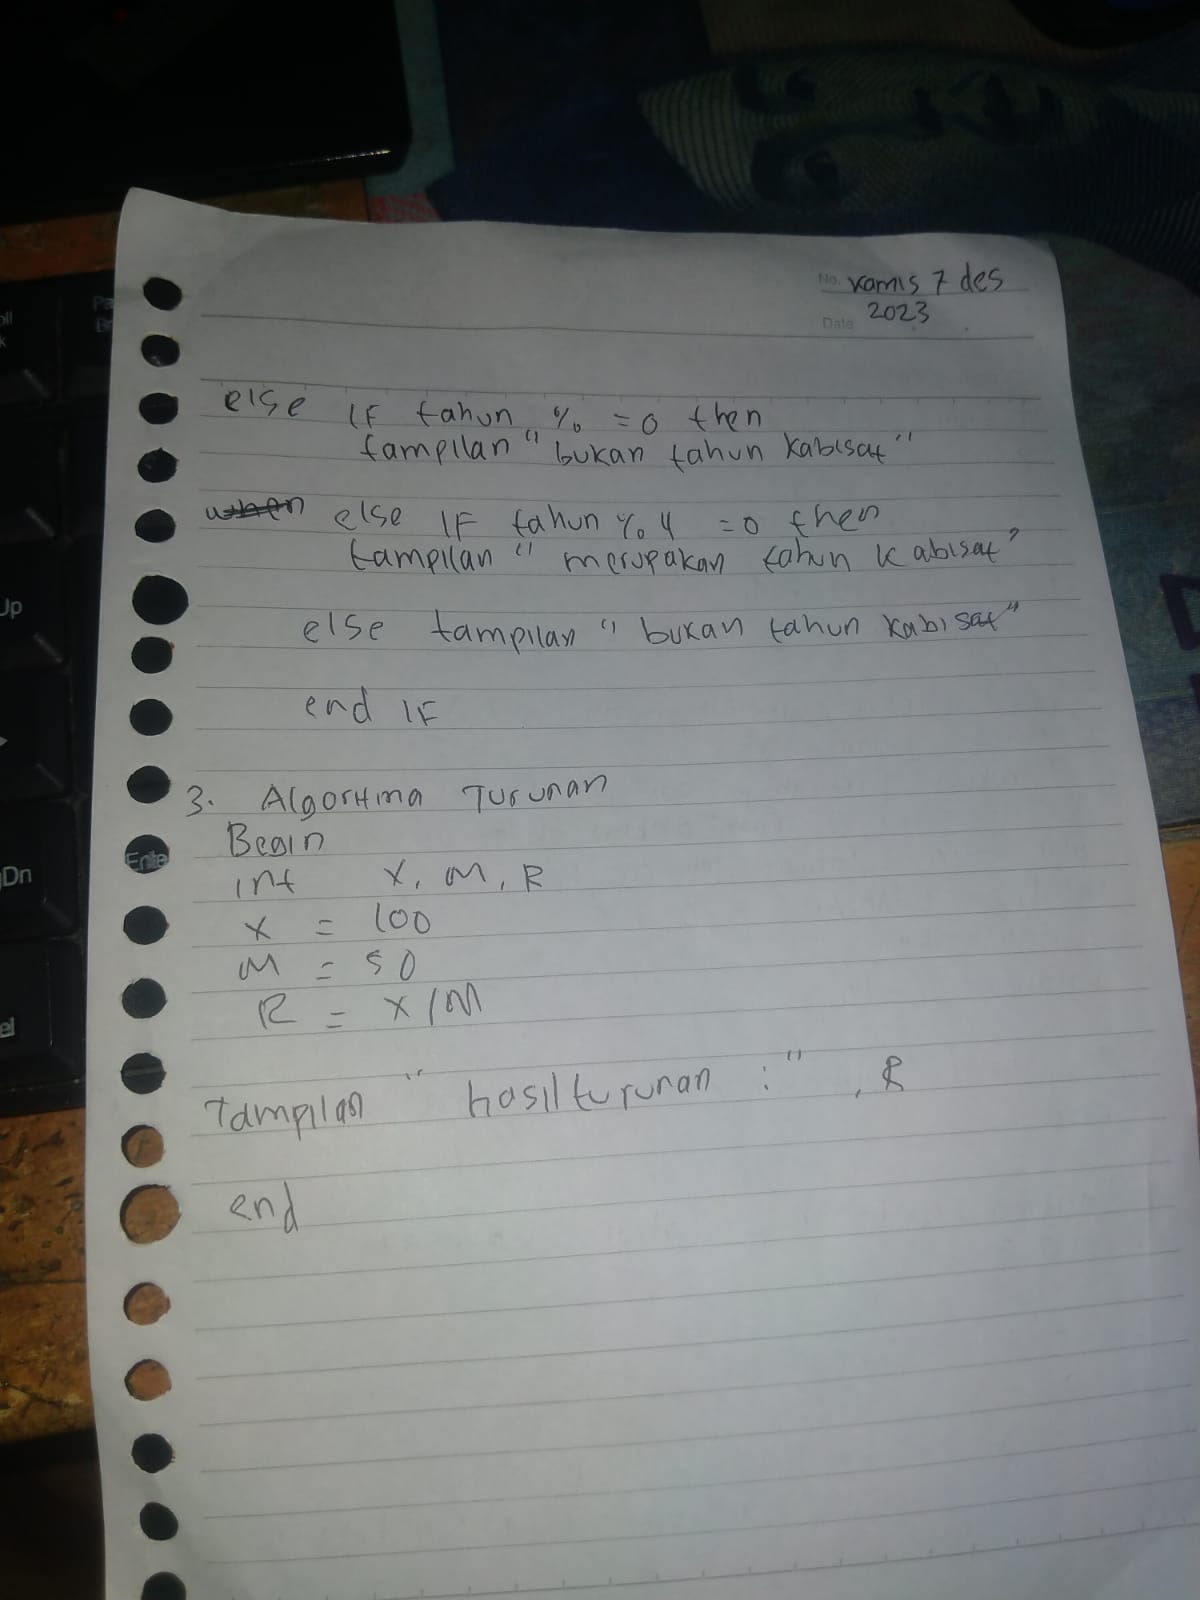 No. Kamis 7 des
Date 2023
else IF tahun % =0 then
tampilan "bukan tahun kabisat"
when else IF tahun % 4 =0 then
tampilan " merupakan tahun kabisat"
else tampilan " bukan tahun kabisat"
end IF
3. Algoritma Turunan
Begin
int X, M, R
X = 100
M = 50
R = X/M
Tampilan " hasil turunan : " , R
end
Up
Enter
gDn